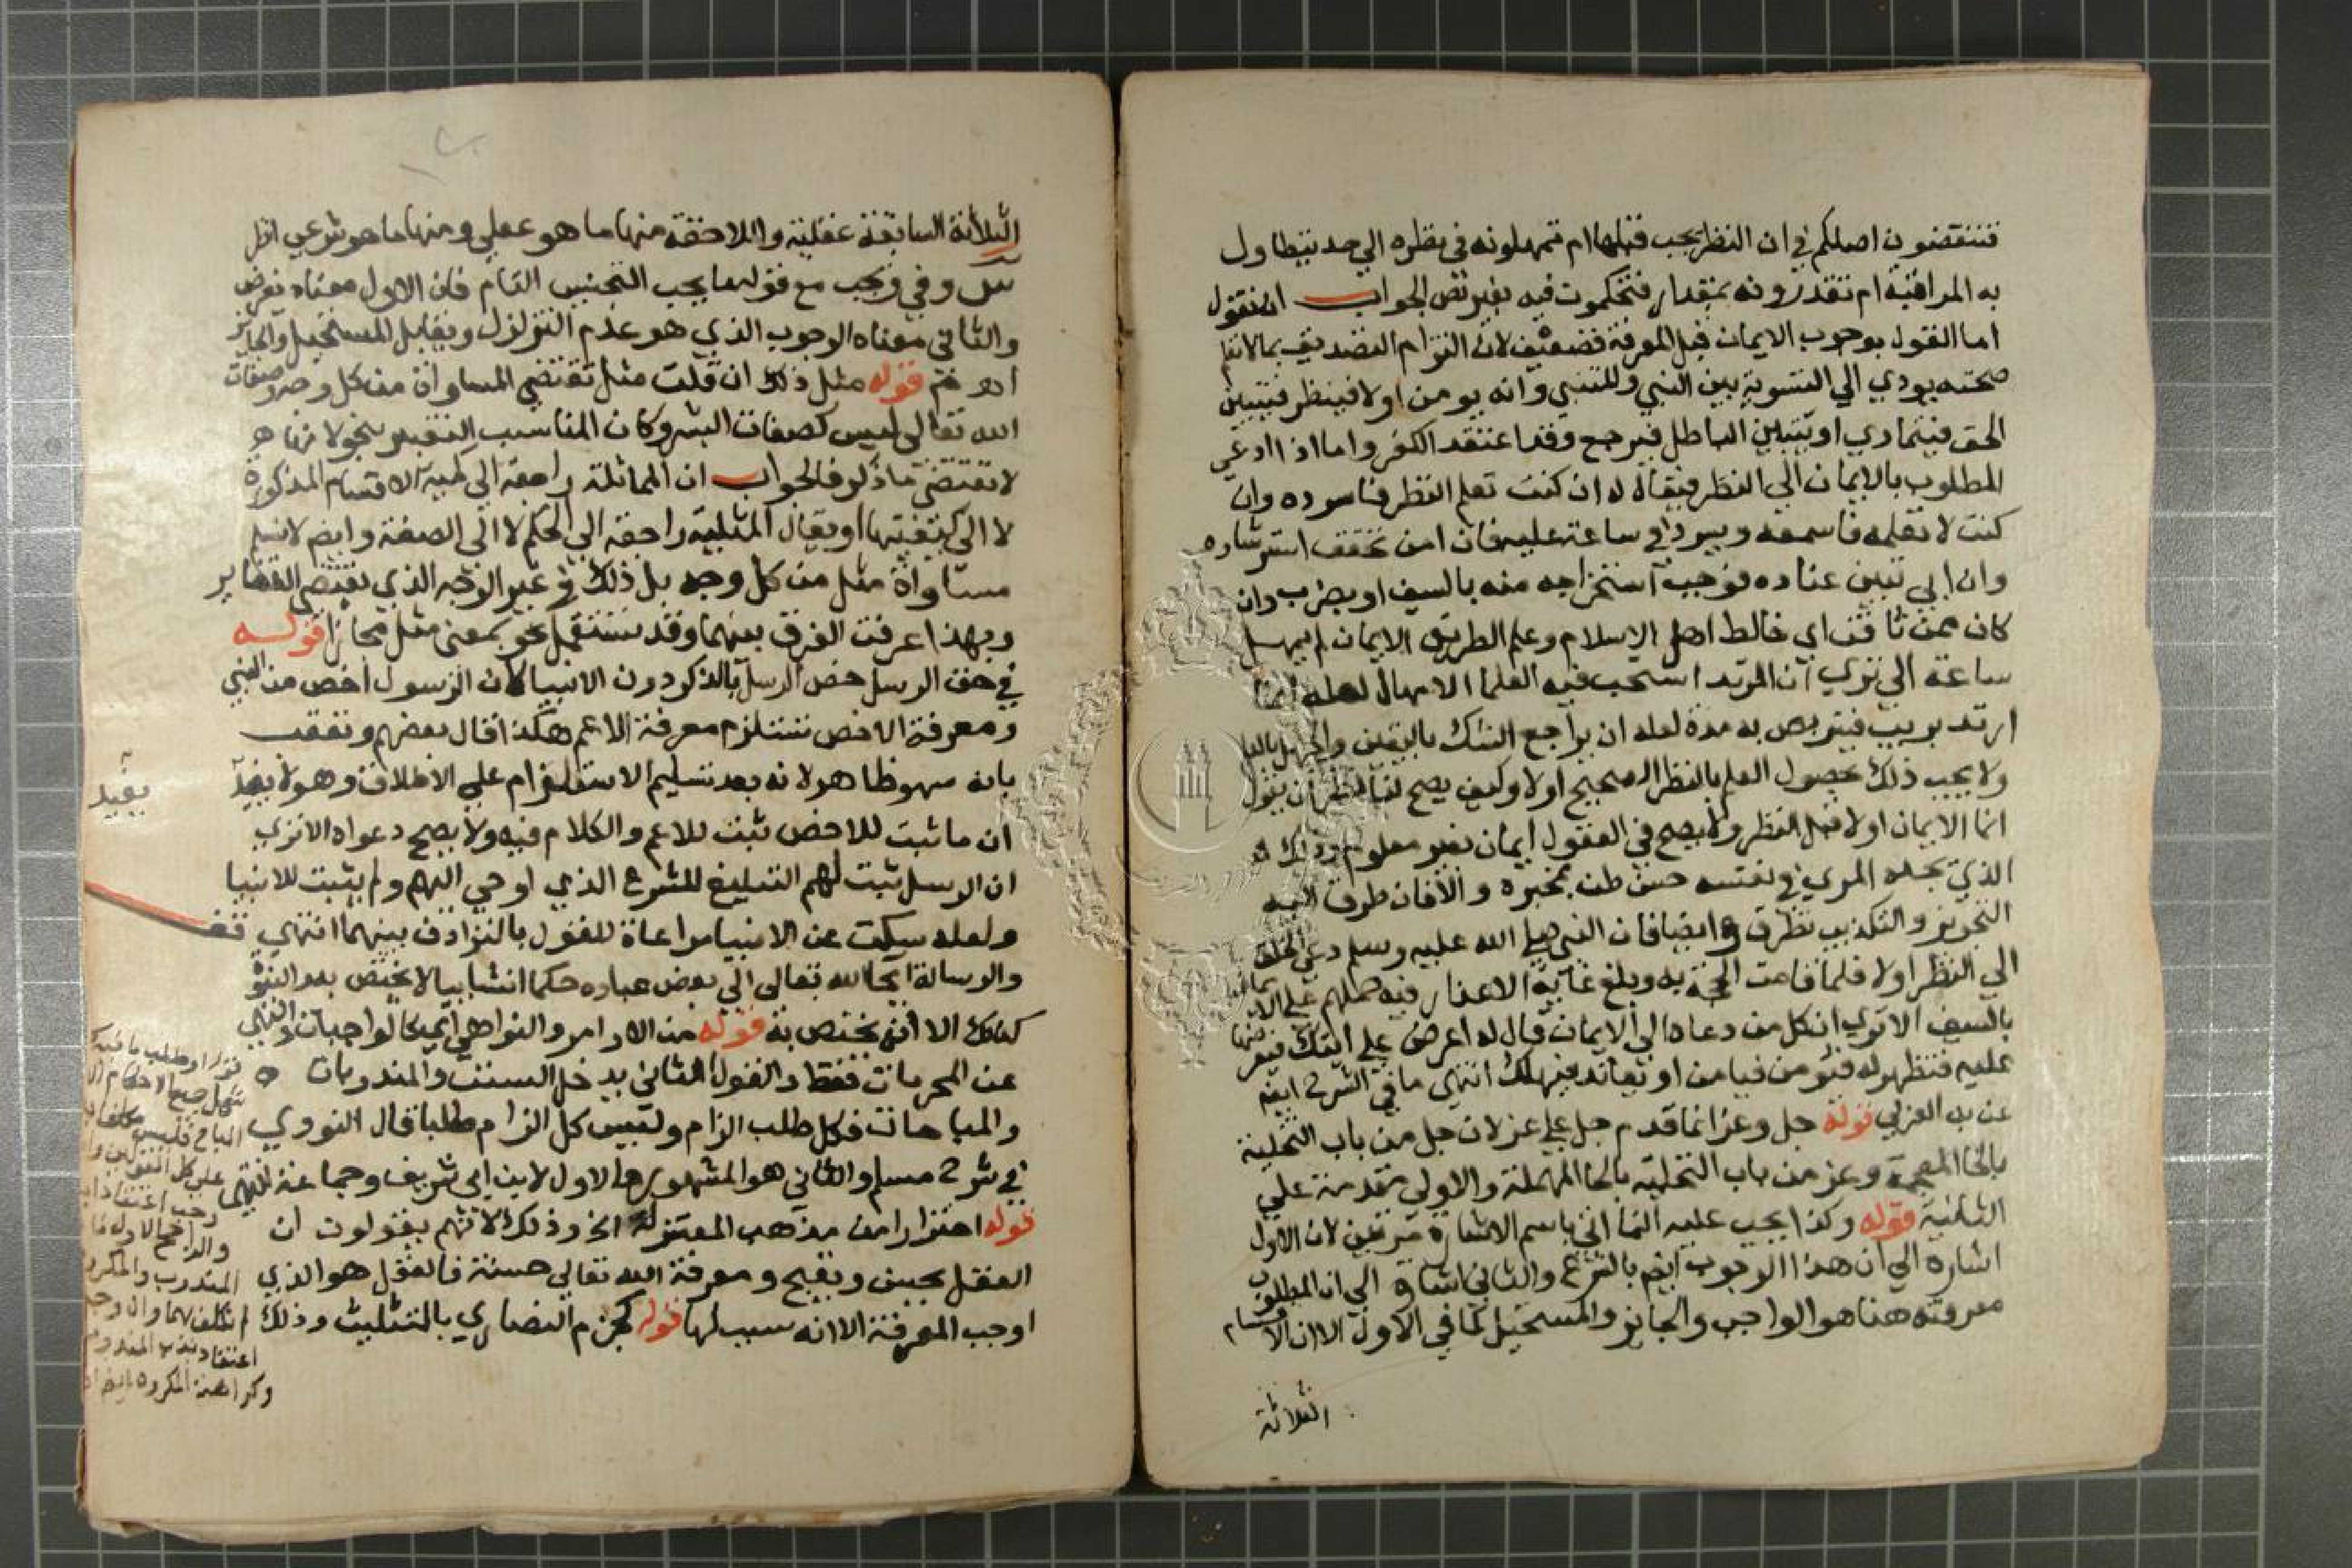 فتنقضون اصلكم في ان النظر يجب قبلها ام تمهلونه في نظره الي حد يتطاول
به المراقبة ام تقدرونه بمقدار فتحكمون فيه بغير نص الجواب ان نقول
اما القول بوجوب الايمان قبل المعرفة فضعيف لان التزام التصديق بما لا تعلم
صحته يودي الي التسوية بين النبي والمتنبي وانه يومن اولا فينظر فيتبين
الحق فيتمادي او يتبين الباطل فيرجع وقد اعتقد الكفر واما اذا ادعي
المطلوب بالايمان الي النظر فيقال له ان كنت تعلم النظر فاسرده وان
كنت لا تعلمه فاسمعه ويسرد في ساعة عليه فان امن تحقق استرشاده
وان ابي تبين عناده فوجب استخراجه منه بالسيف او يضرب وان
كان ممن ثاقف اي خالط اهل الاسلام وعلم الطريق الايمان لم يمهل
ساعة الي تري ان المرتد استحب فيه العلما الامهال لعله انما
ارتد بريب فيتربص به مدة لعله ان يراجع الشك باليقين والجهل بالعلم
ولا يجب ذلك بحصول العلم بالنظر الصحيح اولا وكيف يصح لقايل ان يقول
انما الايمان اولا قبل النظر ولا يصح في المعقول ايمان بغير معلوم وذلك
الذي يجده المري في نفسه حسن ظن بمخبره والا فان طرق اليه
التجويز والتكذيب تطرق وايضا فان النبي صلي الله عليه وسلم دعي الخلق
الي النظر اولا فلما قامت الحجة به وبلغ غاية الاعذار فيه حملهم علي الايمان
بالسيف الا تري ان كل من دعاه الي الايمان قال له اعرض علي ايتك فيعرضها
عليه فتظهر له فيومن فيامن او يعاند فيهلك انتهي ما في الشرح ايضا
عن بن العربي قوله جل وعز انما قدم جل علي عز لان جل من باب التخلية
بالخا المعجمة وعز من باب التحلية بالحا المهملة والاولي مقدمة علي
الثانية قوله وكذا يجب عليه انما اتي باسم الاشارة مرتين لان الاول
اشارة الي ان هذا الوجوب ايضا بالشرع والثاني اشارة الي ان المطلوب
معرفته هنا هو الواجب والجايز والمستحيل كما في الاول الا ان الاقسام
الثلاثة
الثلاثة السابقة عقلية واللاحقة منها ما هو عقلي ومنها ما هو شرعي انظر
وفي ويجب مع قوله ما يجب التجنيس التام فان الاول معناه يفرض
والثاني معناه الوجوب الذي هو عدم التزلزل ويقابل المستحيل والجايز
قوله مثل ذلك ان قلت مثل تقتضي المساواة من كل وجه وصفات
الله تعالي ليس كصفات البشر وكان المناسب التعبير بنحو لانها
لا تقتضي ما ذكر فالجواب ان المماثلة راجعة الي كمية الاقسام المذكورة
لا الي كيفيتها او يقال المثلية راجعة الي الحكم لا الي الصفة وايضا لا نسلم
مساواة مثل من كل وجه بل ذلك في غير الوجه الذي يقتضي التغاير
وبهذا عرفت الفرق بينهما وقد تستعمل نحو بمعني مثل مجازا قوله
في حق الرسل خص الرسل بالذكر دون الانبيا لان الرسول اخص من النبي
ومعرفة الاخص تستلزم معرفة الاعم هكذا قال بعضهم وتعقب
بانه سهو ظاهر لانه بعد تسليم الاستلزام علي الاطلاق وهو لا يفيد
يفيد
ان ما ثبت للاخص ثبت للاعم والكلام فيه ولا يصح دعواه الا تري
ان الرسل ثبت لهم التبليغ للشرع الذي اوحي اليهم ولم يثبت للانبيا
ولعله سكت عن الانبيا مراعاة للقول بالترادف بينهما انتهي قف
والرسالة ايحا الله تعالي الي بعض عباده حكما انشاييا لا يختص به والنبوة
كذلك الا انه يختص به قوله من الاوامر والنواهي اي كالواجبات والنهي
عن المحرمات فقط والقول الثاني يدخل السنن والمندوبات
والمباحات فكل طلب الزام وليس كل الزام طلبا قال النووي
في شرح مسلم والثاني هو المشهور الاول لابن ابي شريف وجماعة انتهي
قوله احترازا من مذهب المعتزلة الخ وذلك لانهم يقولون ان
العقل يحسن ويقبح ومعرفة الله تعالي حسنة فالعقل هو الذي
اوجب المعرفة الا انه سبب لها قوله كجزم النصاري بالتثليث وذلك
قوله او طلب ما فيه
المباح فليس
علي كل القولين
وجب اعتقاد
والراجح الاول
المندوب والمكروه
اعتقاد ندب المندوب
وكراهة المكروه ايضا